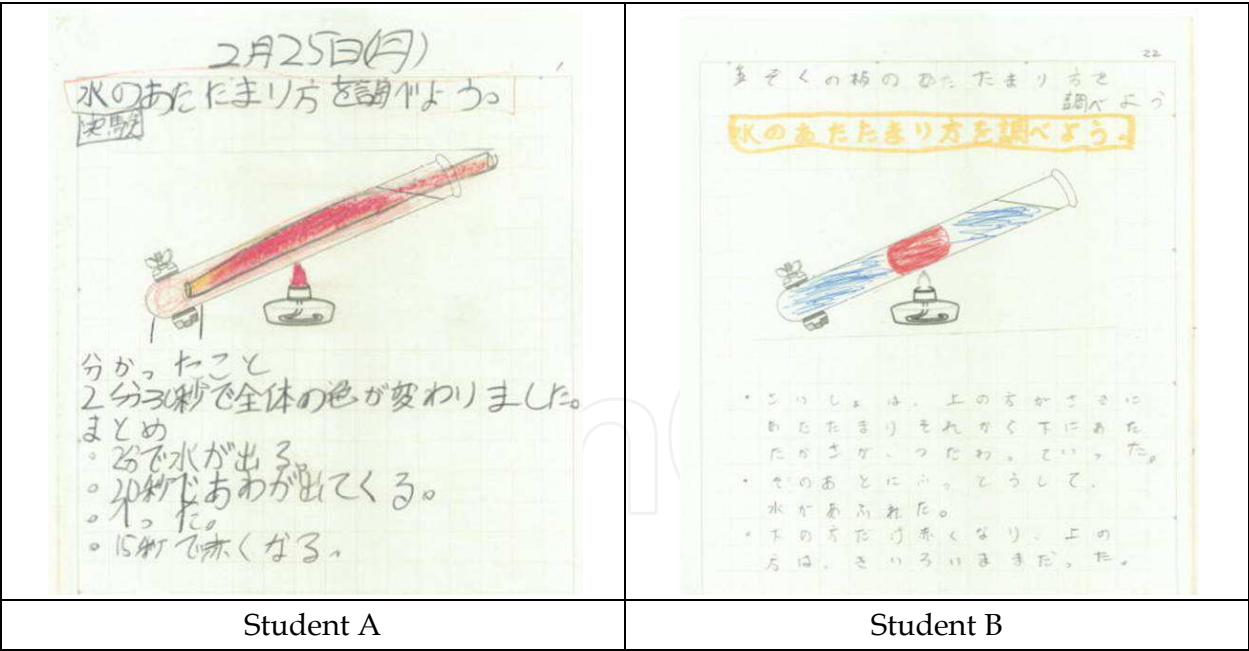 2月25日(月)
水のあたたまり方を調べよう。
実験
分かったこと
2分30秒で全体の色が変わりました。
まとめ
。2分で水が出る。
。20秒であわが出てくる。
。った。
。15秒で赤くなる。
Student A
22
金ぞくの板のあたたまり方を
調べよう
水のあたたまり方を調べよう。
・さいしょは、上の方がさきに
あたたまりそれから下にあた
たかさが、つたわっていった。
・そのあとにふっとうして、
水があふれた。
・下の方だけ赤くなり、上の
方は、きいろいままだった。
Student B